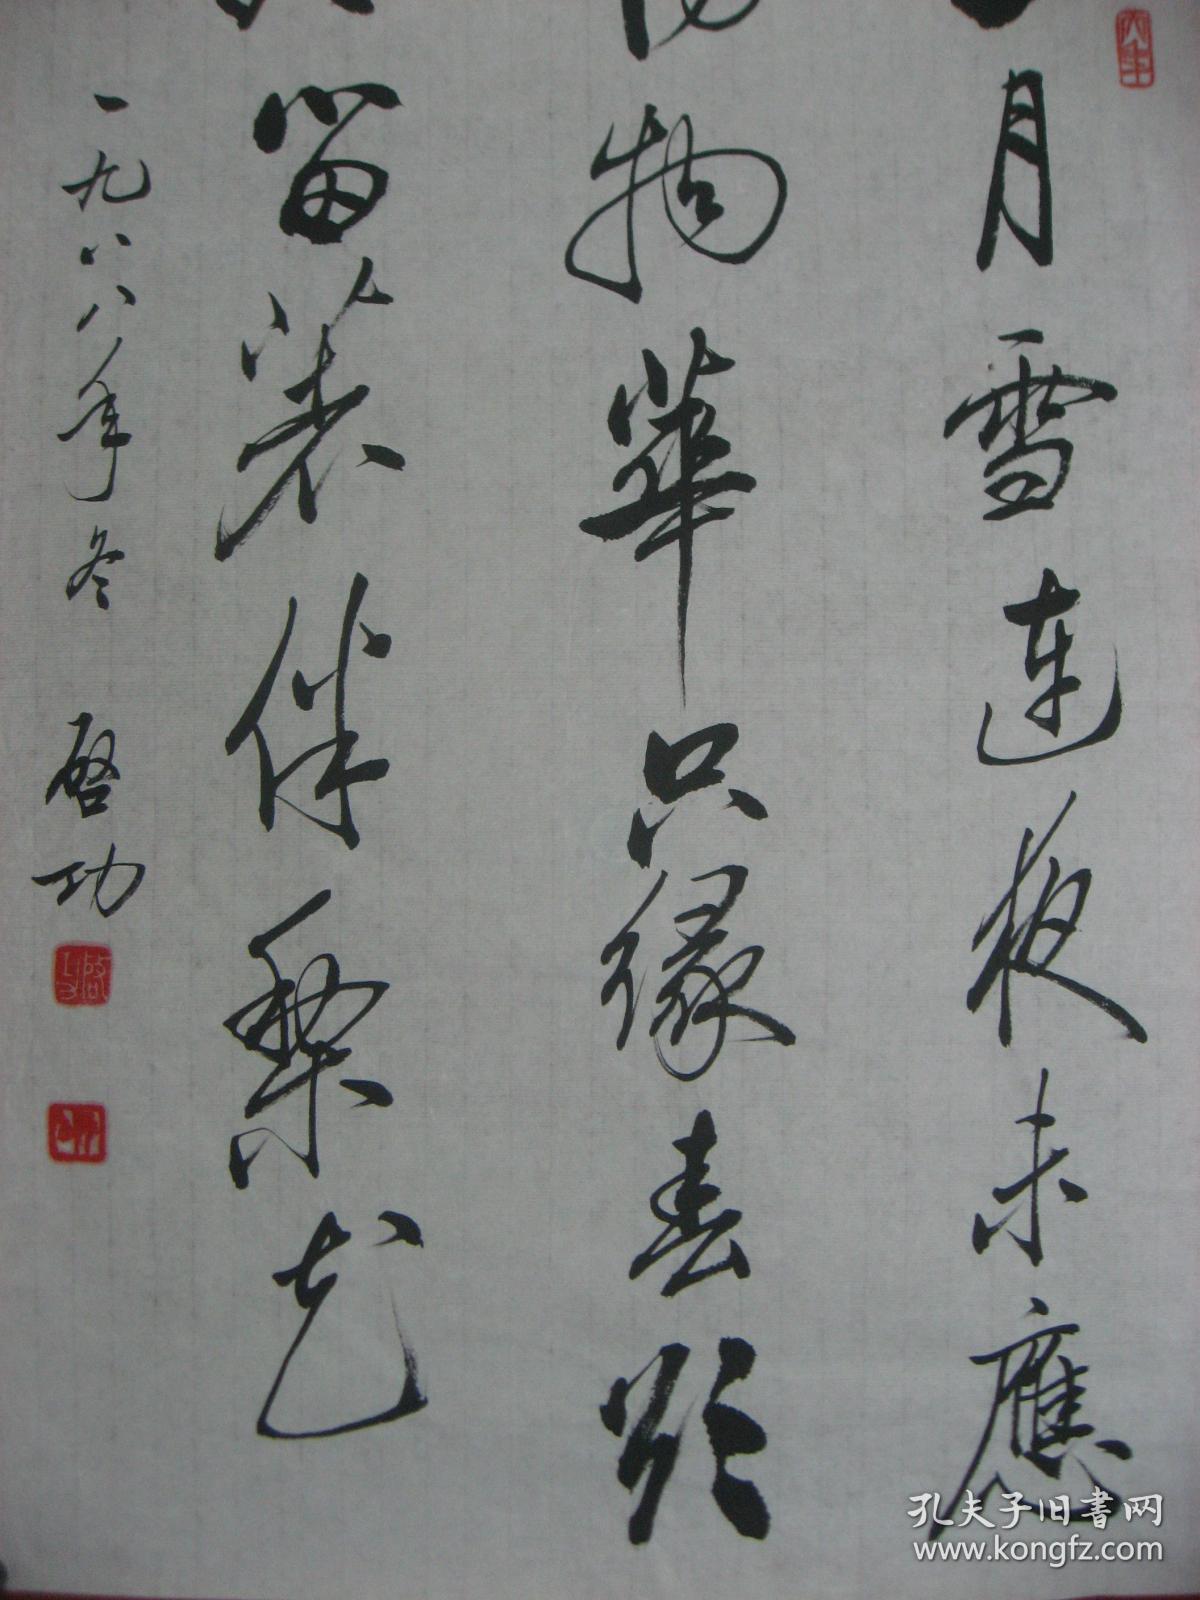 月雪連夜未應
物華只緣春欲
留著伴梨花
一九八八年冬 啓功
孔夫子旧书网
www.kongfz.com